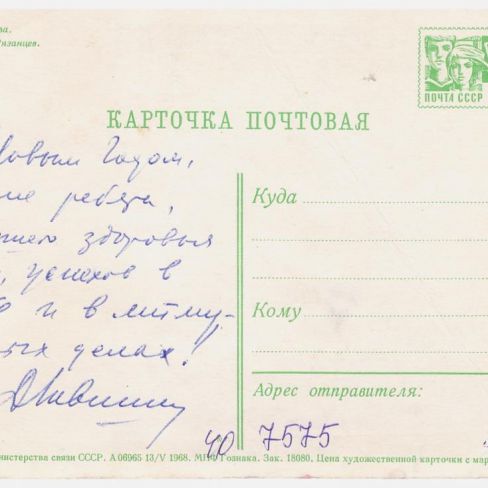 ва.
Рязанцев.
ПОЧТА СССР
КАРТОЧКА ПОЧТОВАЯ
Новым Годом,
ие ребята,
шего здоровья
, успехов в
и в
ных делах!
Куда
Кому
Адрес отправителя:
40 7575
нистерства связи СССР. А 06965 13/V 1968. МПФ Гознака. Зак. 18080. Цена художественной карточки с мар